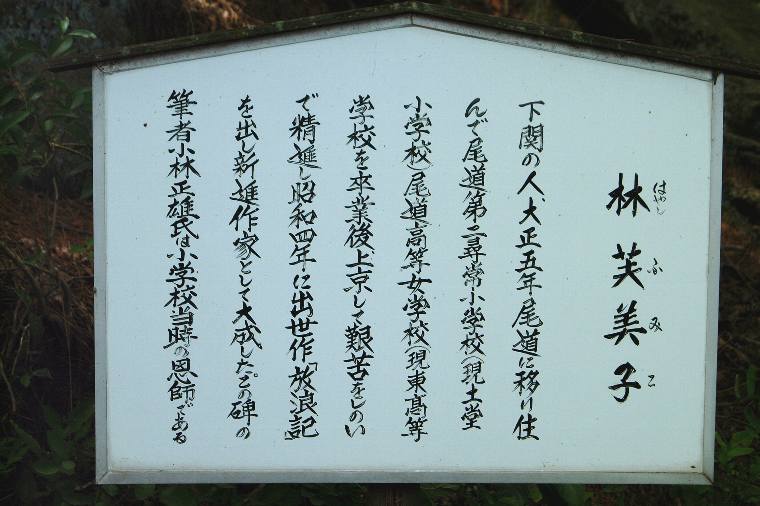 林芙美子
はやしふみこ
下関の人、大正五年尾道に移り住
んで尾道第二尋常小学校(現土堂
小学校)尾道高等女学校(現東高等
学校を卒業後上京して艱苦をしのい
で精進し昭和四年に出世作「放浪記」
を出し新進作家として大成した。この碑の
筆者小林正雄氏は小学校当時の恩師である